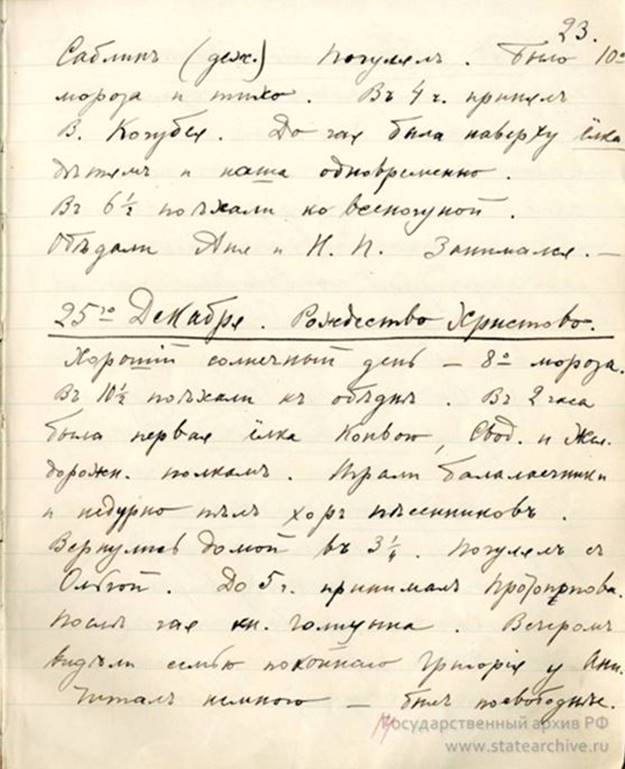 23.
Саблинъ (деж.) Погулялъ. Было 10°
мороза и тихо. Въ 4 ч. принялъ
В. Кочубея. До чая была наверху ёлка
дѣтямъ и наша одновременно.
Въ 6½ поѣхали ко всеночуной.
Обѣдали Аня и Н. П. Занимался. —
25го Декабря. Рождество Христово.
Хорошій солнечный день — 8° мороза.
Въ 10½ поѣхали къ обѣднѣ. Въ 2 часа
была первая ёлка Конвою, Свод. и Жел.
дорожн. полкамъ. Играли балалаечники
и недурно пѣлъ хоръ пѣсенниковъ.
Вернулись домой въ 3¼. Погулялъ съ
Ольгой. До 5 ч. принималъ Протопопова.
Послѣ чая кн. Голицына. Вечеромъ
видѣли семью покойнаго Григорія у Ани.
Читалъ немного — былъ посвободнѣе.
Государственный архив РФ
www.statearchive.ru